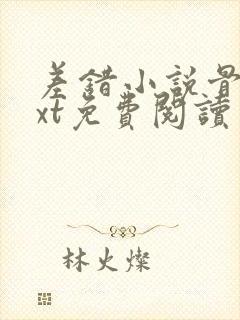 差錯小說
xt免費閱讀
林火燦